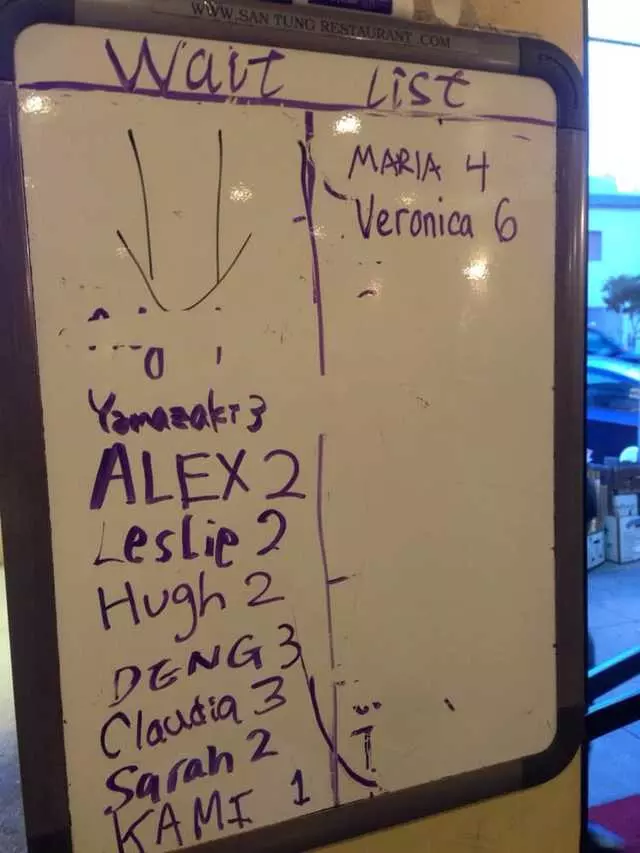 WWW.SAN TUNG RESTAURANT.COM
Wait List
Yamazaki 3
ALEX 2
Leslie 2
Hugh 2
DENG 3
Claudia 3
Sarah 2
KAMI 1
MARIA 4
Veronica 6